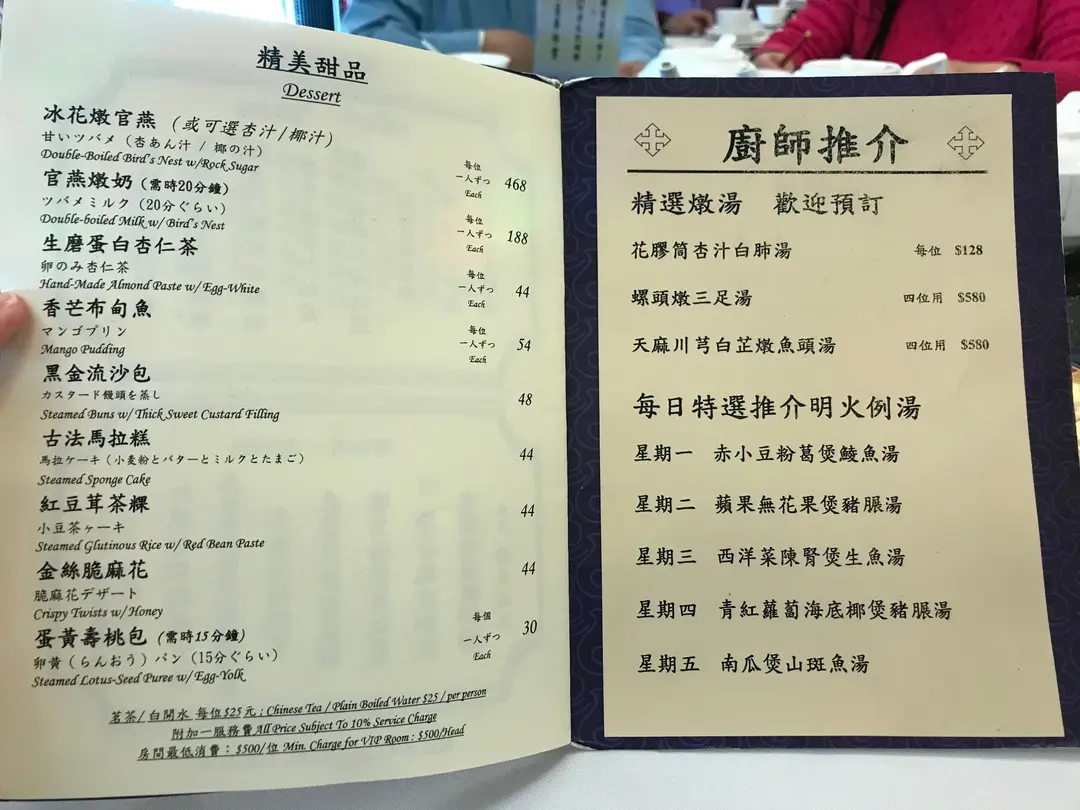 精美甜品
Dessert
冰花燉官燕 (或可選杏汁/椰汁)
甘いツバメ (杏あん汁 / 椰の汁)
Double-Boiled Bird's Nest w/Rock Sugar
每位
一人ずつ 468
Each
官燕燉奶 (需時20分鐘)
ツバメミルク (20分ぐらい)
Double-boiled Milk w/ Bird's Nest
每位
一人ずつ 188
Each
生磨蛋白杏仁茶
卵のみ杏仁茶
Hand-Made Almond Paste w/ Egg-White
每位
一人ずつ 44
Each
香芒布甸魚
マンゴプリン
Mango Pudding
每位
一人ずつ 54
Each
黑金流沙包
カスタード饅頭を蒸し
Steamed Buns w/ Thick Sweet Custard Filling
48
古法馬拉糕
馬拉ケーキ (小麦粉とバターとミルクとたまご)
Steamed Sponge Cake
44
紅豆茸茶粿
小豆茶ケーキ
Steamed Glutinous Rice w/ Red Bean Paste
44
金絲脆麻花
脆麻花デザート
Crispy Twists w/ Honey
44
蛋黃壽桃包 (需時15分鐘)
卵黄 (らんおう) パン (15分ぐらい)
Steamed Lotus-Seed Puree w/ Egg-Yolk
每個
一人ずつ 30
Each
茗茶/ 白開水 每位$25元 ; Chinese Tea / Plain Boiled Water $25 / per person
附加一服務費 All Price Subject To 10% Service Charge
房間最低消費 : $500/位 Min. Charge for VIP Room : $500/Head
廚師推介
精選燉湯 歡迎預訂
花膠筒杏汁白肺湯 每位 $128
螺頭燉三足湯 四位用 $580
天麻川芎白芷燉魚頭湯 四位用 $580
每日特選推介明火例湯
星期一 赤小豆粉葛煲鯪魚湯
星期二 蘋果無花果煲豬𦟌湯
星期三 西洋菜陳腎煲生魚湯
星期四 青紅蘿蔔海底椰煲豬𦟌湯
星期五 南瓜煲山斑魚湯